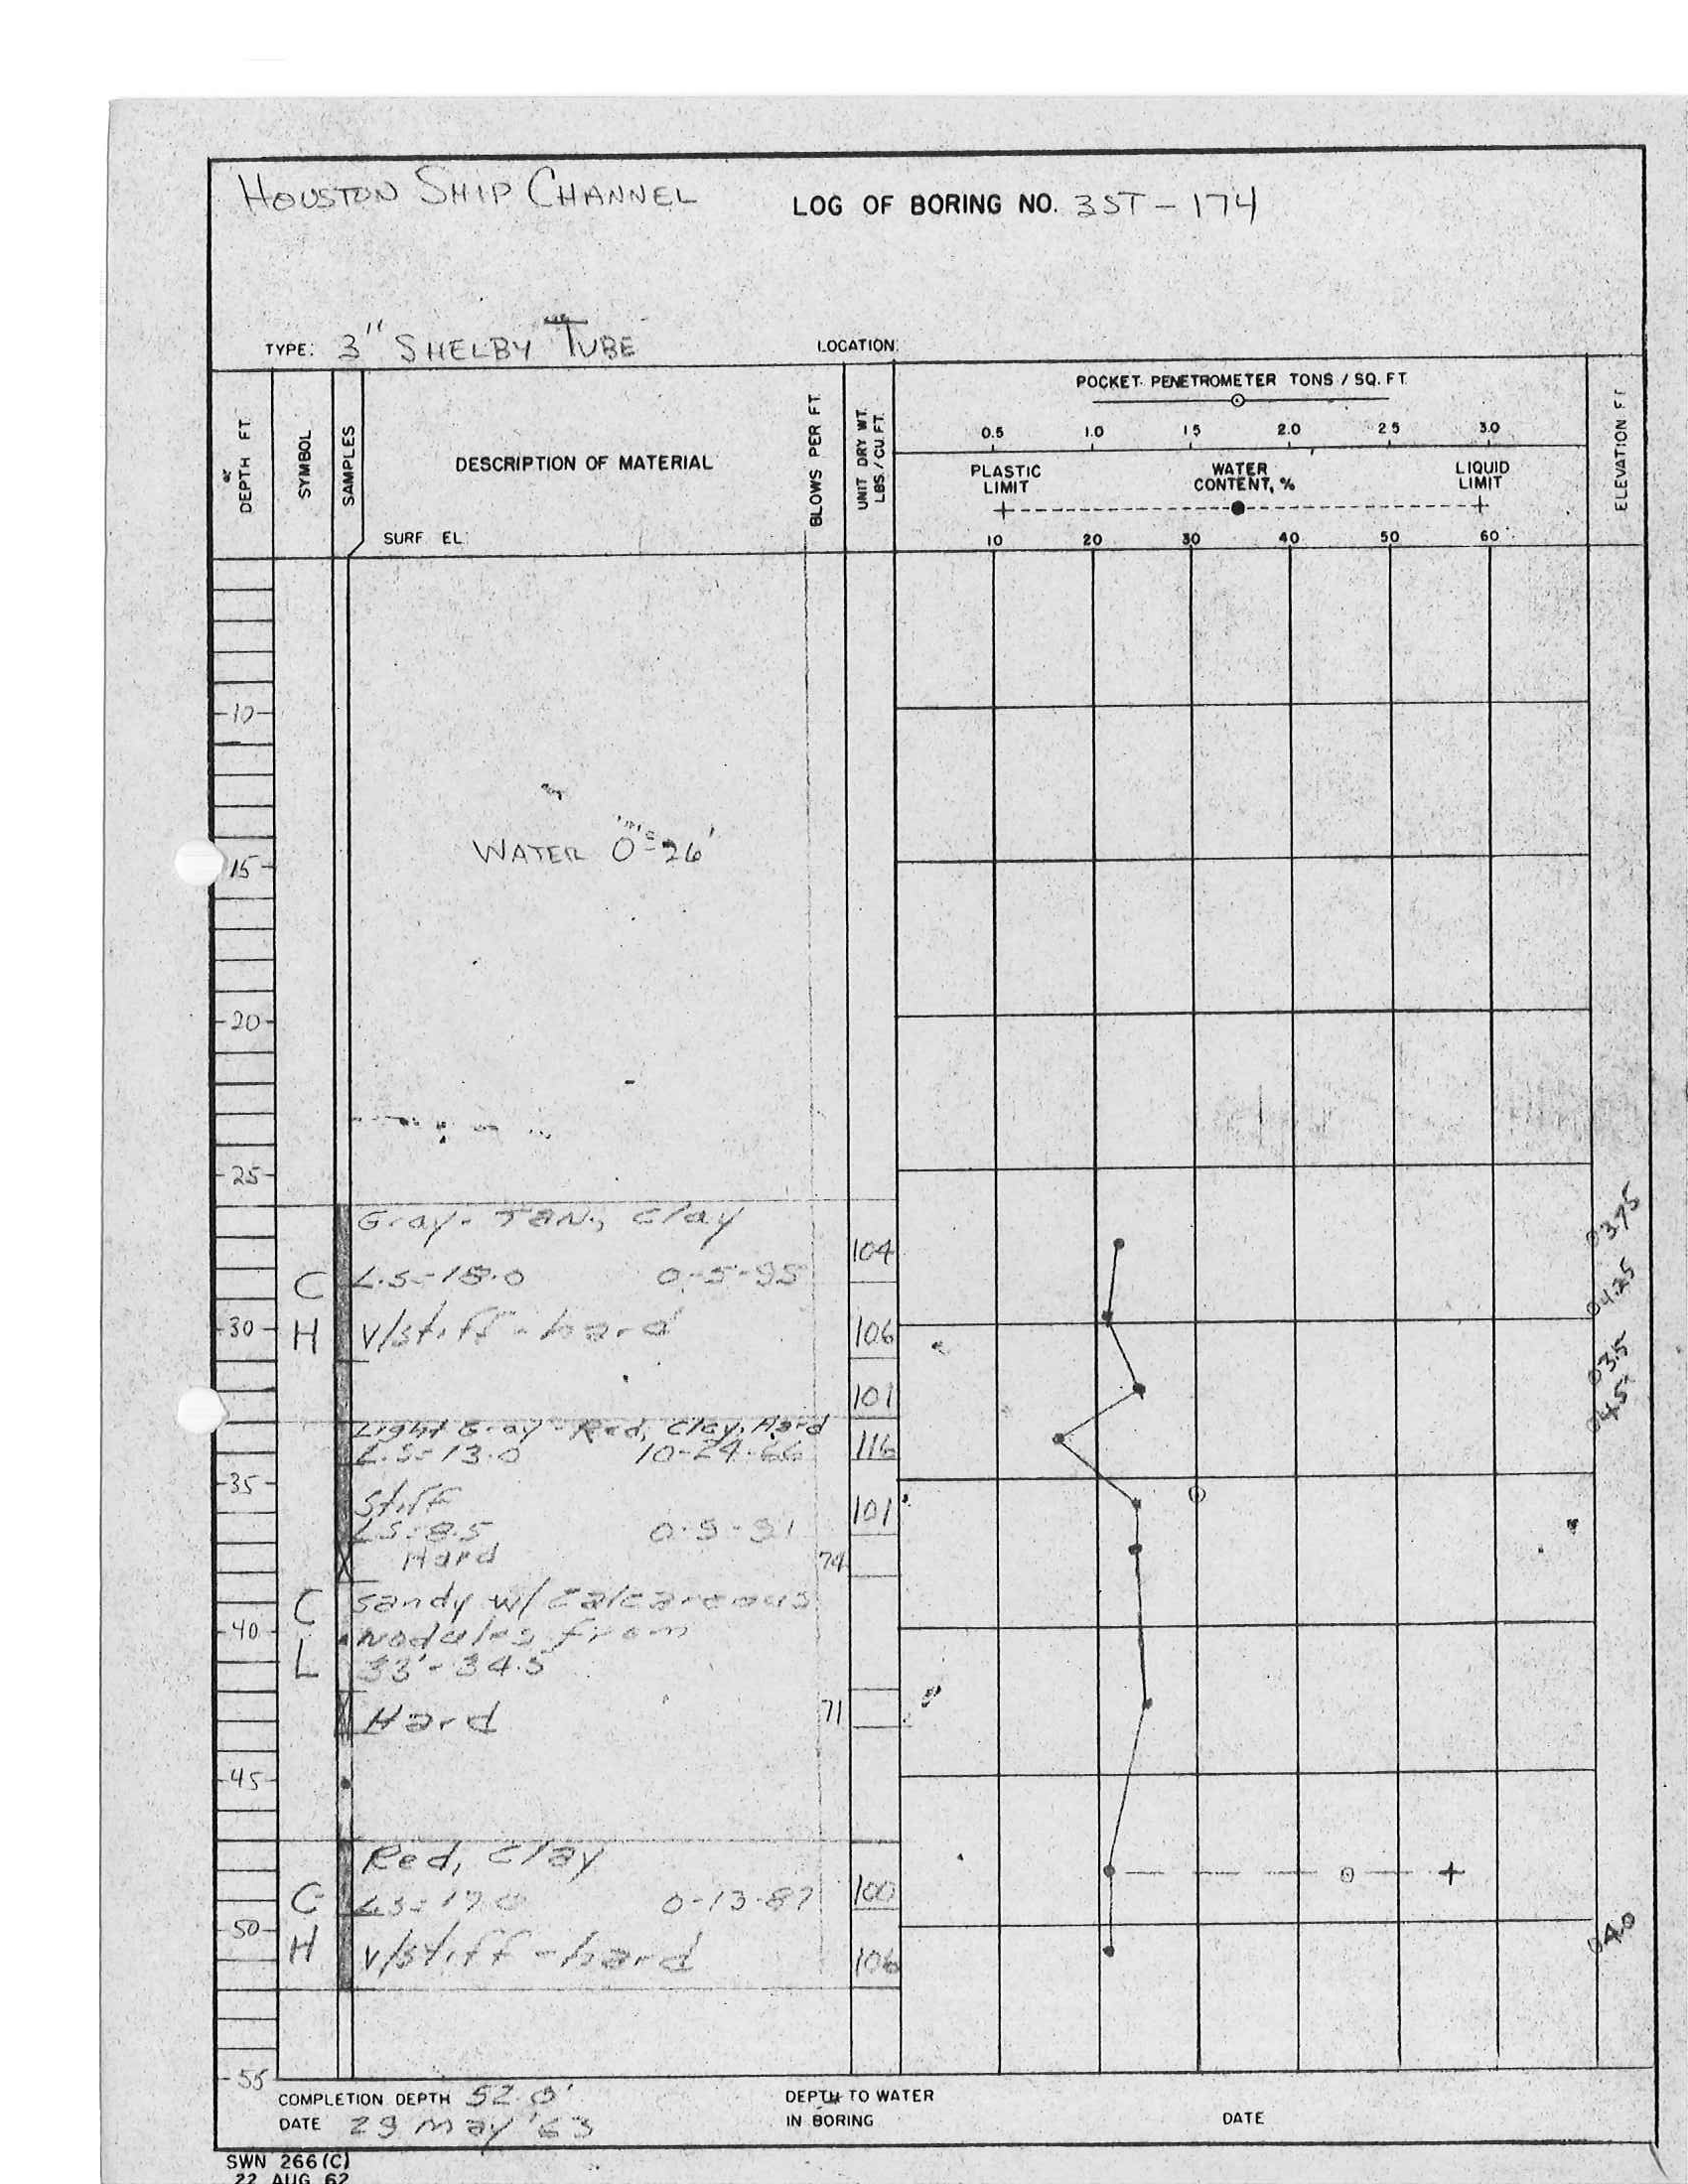 HOUSTON SHIP CHANNEL LOG OF BORING NO. 3ST-174
TYPE: 3" SHELBY TUBE LOCATION:
DEPTH FT.
SYMBOL
SAMPLES
DESCRIPTION OF MATERIAL
SURF EL:
BLOWS PER FT.
UNIT DRY WT. LBS./CU.FT.
POCKET PENETROMETER TONS / SQ. FT.
0.5 1.0 1.5 2.0 2.5 3.0
PLASTIC LIMIT
WATER CONTENT, %
LIQUID LIMIT
10 20 30 40 50 60
ELEVATION FT
10
WATER 0-26'
15
20
25
Gray-Tan, Clay
104 03.75
C L.S=18.0 0-5-95
04.25
30 H v/stiff-hard 106
03.5
101
04.5
Light Gray-Red, Clay, Hard
L.S=13.0 10-24-66 116
35
Stiff 101
LS=8.5 0-9-91
Hard 74
C sandy w/ calcareous
40 nodules from
L 33'-34.5
Hard 71
45
Red, Clay
C LS=17.0 0-13-87 100
50 04.0
H v/stiff-hard 106
55
COMPLETION DEPTH 52.0'
DATE 29 May '63
DEPTH TO WATER
IN BORING DATE
SWN 266 (C)
22 AUG 62